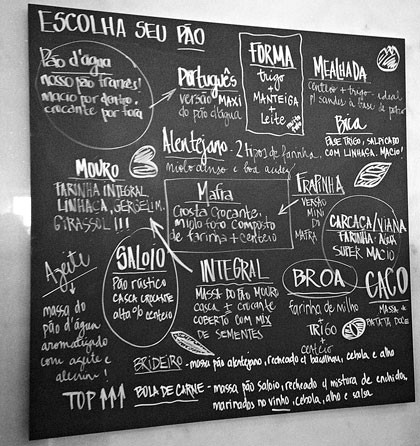 ESCOLHA SEU PÃO
Pão d'água
nosso pão francês!
macio por dentro,
crocante por fora
Português
versão MAXI
do pão d'água
FORMA
trigo
+
MANTEIGA
+
Leite
MEALHADA
centeio + trigo ideal
p/ sandus à base de
BICA
BASE TRIGO, SALPICADO
COM LINHAÇA. MACIO!
Alentejano - 2 tipos de farinha,
miolo coeso e boa acidez
MOURO
FARINHA INTEGRAL
LINHAÇA, GERGELIM,
GIRASSOL!!!
Mafra
Crosta crocante,
miolo fofo composto
de farinha + centeio
FRAPINHA
VERSÃO
MINI
DI
MAFRA
CARCAÇA/VIANA
FARINHA + ÁGUA
SUPER MACIO
Azeite
massa do
pão d'água
aromatizado
com azeite e
alecrim!
SALOIO
PÃO rústico
CASCA CROCANTE
alta % centeio
INTEGRAL
MASSA DO PÃO MOURO
CASCA ± CROCANTE
COBERTO COM MIX
DE SEMENTES
BROA
farinha de milho
+
TRIGO
+
centeio
CACO
MASSA +
BATATA DOCE
ERIDEIRO - massa pão alentejano, recheado c/ bacalhau, cebola e alho
TOP ↑↑↑
BOLA DE CARNE - massa pão saloio, recheado c/ mistura de enchidos,
marinados no vinho, cebola, alho e salsa